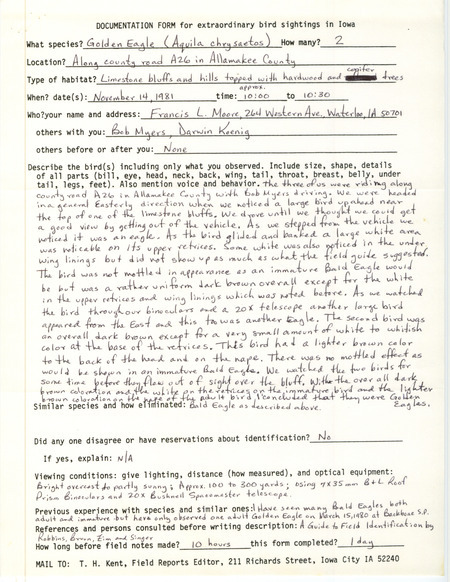 DOCUMENTATION FORM for extraordinary bird sightings in Iowa
What species? Golden Eagle (Aquila chrysaetos) How many? 2
Location? Along county road A26 in Allamakee County
Type of habitat? Limestone bluffs and hills topped with hardwood and conifer trees
When? date(s): November 14, 1981 time: approx. 10:00 to 10:30
Who? your name and address: Francis L. Moore, 264 Western Ave, Waterloo, IA 50701
others with you: Bob Myers, Darwin Koenig
others before or after you: None
Describe the bird(s) including only what you observed. Include size, shape, details
of all parts (bill, eye, head, neck, back, wing, tail, throat, breast, belly, under
tail, legs, feet). Also mention voice and behavior. The three of us were riding along
county road A26 in Allamakee County with Bob Myers driving. We were headed
in a general Easterly direction when we noticed a large bird up ahead near
the top of one of the limestone bluffs. We drove until we thought we could get
a good view by getting out of the vehicle. As we stepped from the vehicle we
noticed it was an eagle. As the bird glided and banked a large white area
was noticable on its upper retrices. Some white was also noticed in the under
wing linings but did not show up as much as what the field guide suggested.
The bird was not mottled in appearance as an immature Bald Eagle would
be but was a rather uniform dark brown overall except for the white
in the upper retrices and wing linings which was noted before. As we watched
the bird through our binoculars and a 20X telescope another large bird
appeared from the East and this too was another Eagle. The second bird was
an overall dark brown except for a very small amount of white to whitish
color at the base of the retrices. This bird had a lighter brown color
to the back of the head and on the nape. There was no mottled effect as
would be shown in an immature Bald Eagle. We watched the two birds for
some time before they flew out of sight over the bluff. With the over all dark
brown coloration and the white on the retrices on the immature bird and the lighter
brown coloration on the nape of the adult bird I concluded that they were Golden
Eagles.
Similar species and how eliminated: Bald Eagle as described above.
Did any one disagree or have reservations about identification? No
If yes, explain: N/A
Viewing conditions: give lighting, distance (how measured), and optical equipment:
Bright overcast to partly sunny; Approx. 100 to 300 yards; using 7X35mm B+L Roof
Prism Binoculars and 20X Bushnell Spacemaster telescope.
Previous experience with species and similar ones: I have seen many Bald Eagles both
adult and immature but have only observed one adult Golden Eagle on March 15, 1980 at Backbone S.P.
References and persons consulted before writing description: A Guide to Field Identification by
Robbins, Bruun, Zim and Singer
How long before field notes made? 10 hours this form completed? 1 day
MAIL TO: T. H. Kent, Field Reports Editor, 211 Richards Street, Iowa City IA 52240